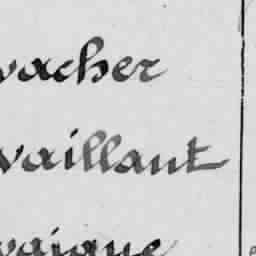 vacher
vaillant